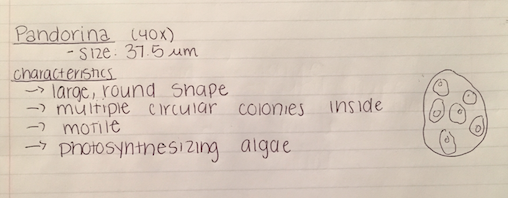 Pandorina (40x)
- size: 37.5 um
characteristics
→ large, round shape
→ multiple circular colonies inside
→ motile
→ photosynthesizing algae